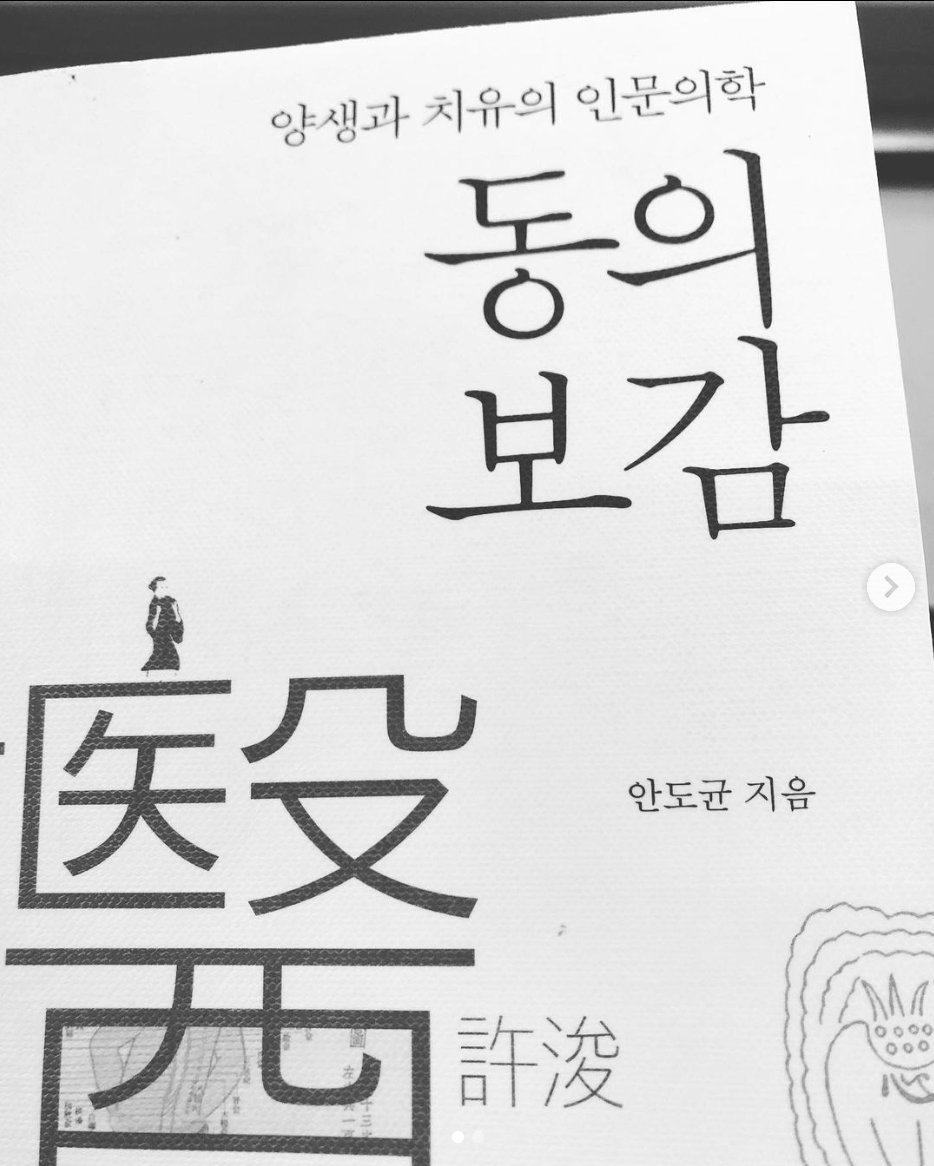 양생과 치유의 인문의학
동의
보감
醫
안도균 지음
許浚
心